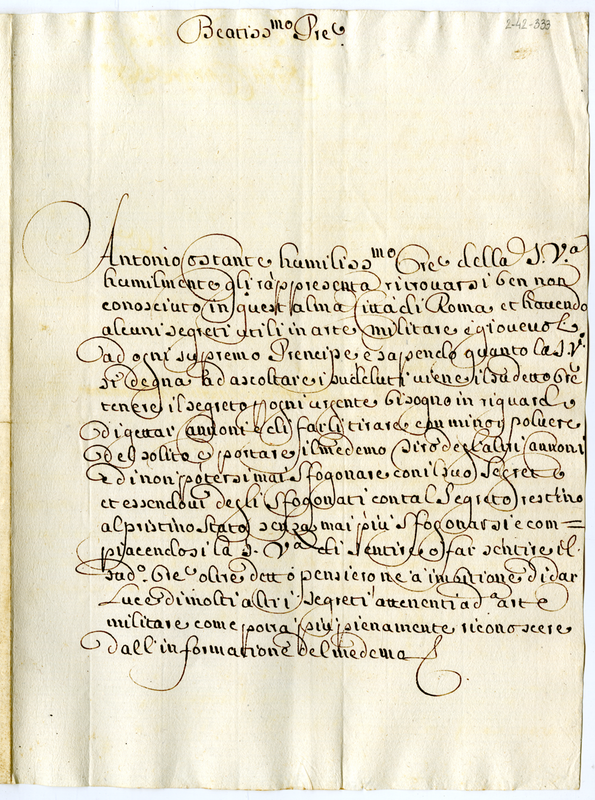 Beatiss.mo Pre
2-42-333
Antonio ostante humiliss.mo Ore della S. V.a
humilmente gli rappresenta ritrovarsi ben non
conosciuto in quest'alma Città di Roma et havendo
alcuni segreti utili in arte militare e giovevol
ad ogni supremo Prencipe e sapendo quanto la S. V.
si degna ad ascoltare i suoi viene il sudetto Ore
tenere il segreto ogni urgente bisogno in riguard
di gettar cannoni e di farli tirare con minor polvere
del solito e portare il medemo tiro degl'altri cannoni
e di non potersi mai sfogonare con il suo segreto
et essendovi degli sfogonati con tal segreto restino
al pristino stato senza mai più sfogonarsi e com=
piacendosi la S. V.a di sentire o far sentire il
sud.o Ore oltre detto pensiero ne à imbitione di dar
luce di molti altri segreti attenenti ad.a arte
militare come potrà più pienamente riconoscere
dall'informatione del medema